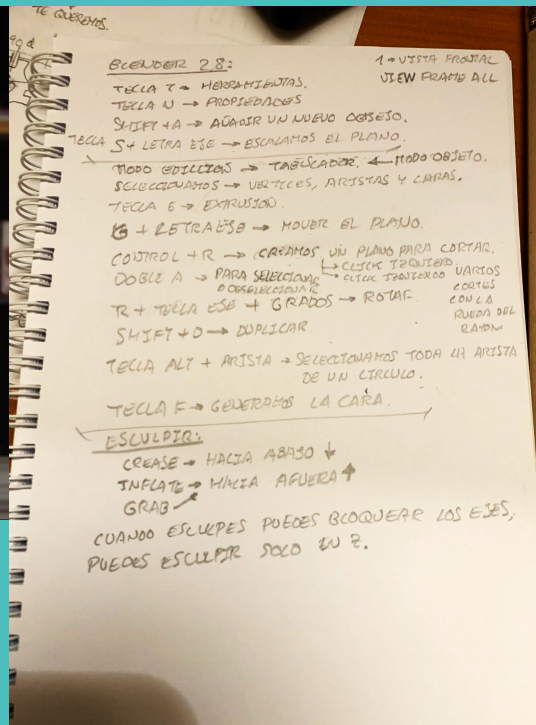 TE QUEREMOS.
BLENDER 2.8:
1 → VISTA FRONTAL
VIEW FRAME ALL
TECLA T → HERRAMIENTAS.
TECLA N → PROPIEDADES
SHIFT + A → AÑADIR UN NUEVO OBJETO.
TECLA S + LETRA EJE → ESCALAMOS EL PLANO.
MODO EDICCION → TABULADOR. ← MODO OBJETO.
SELECCIONAMOS → VERTICES, ARISTAS Y CARAS.
TECLA E → EXTRUSION.
G + LETRA EJE → MOVER EL PLANO.
CONTROL + R → CREAMOS UN PLANO PARA CORTAR.
→ CLICK IZQUIERO.
DOBLE A → PARA SELECCIONAR
O DESELECCIONAR
→ CLICK IZQUIERDO VARIOS
CORTES
CON LA
RUEDA DEL
RATON
R + TECLA EJE + GRADOS → ROTAR
SHIFT + D → DUPLICAR
TECLA ALT + ARISTA → SELECCIONAMOS TODA LA ARISTA
DE UN CIRCULO.
TECLA F → GENERAMOS LA CARA.
ESCULPIR:
CREASE → HACIA ABAJO ↓
INFLATE → HACIA AFUERA ↑
GRAB
CUANDO ESCULPES PUEDES BLOQUEAR LOS EJES,
PUEDES ESCULPIR SOLO EN Z.